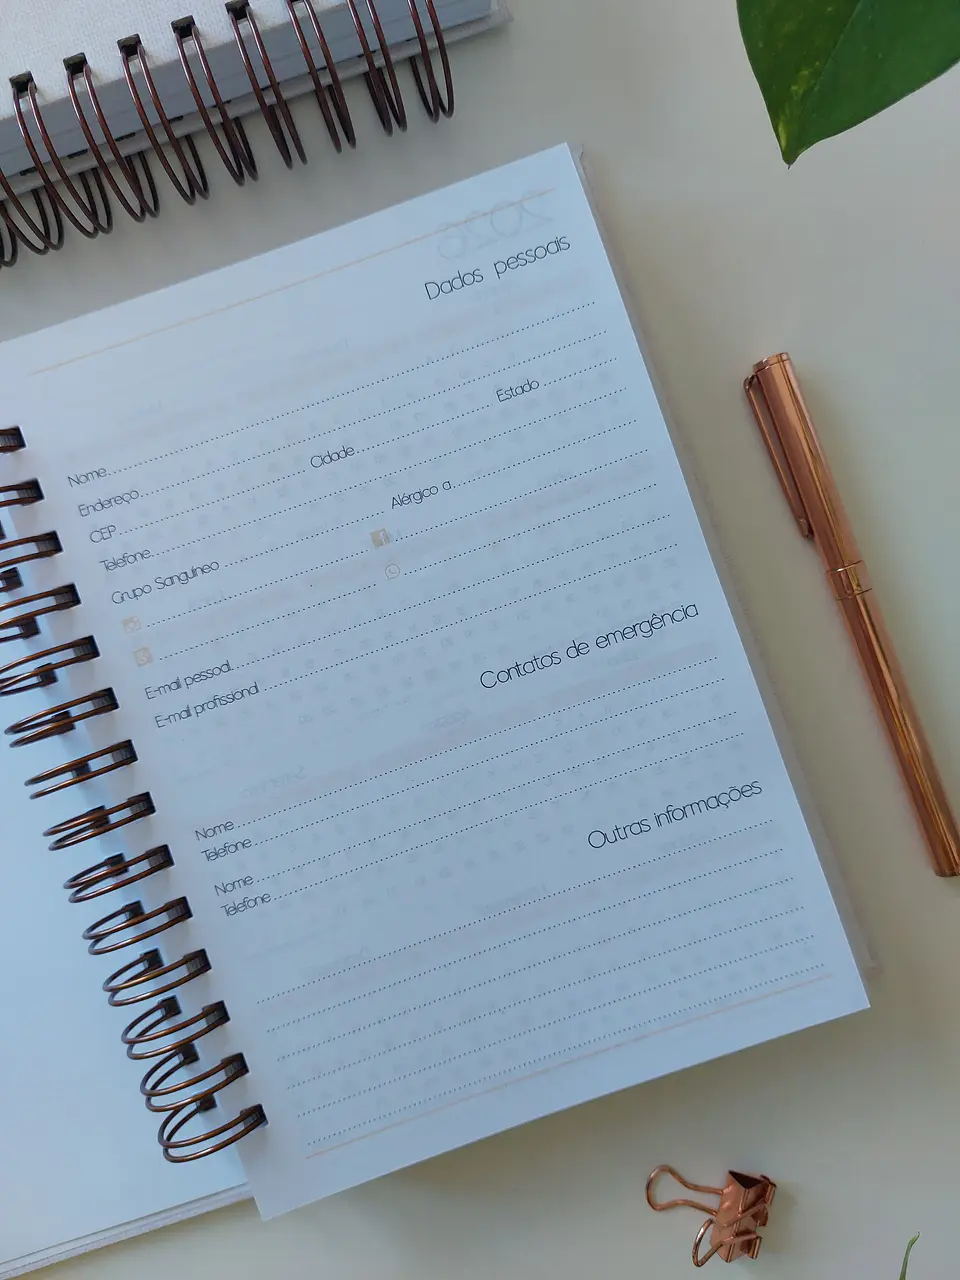 2026
Dados pessoais
Nome
Endereço
CEP Cidade Estado
Telefone
Grupo Sanguíneo Alérgico a
E-mail pessoal
E-mail profissional
Contatos de emergência
Nome
Telefone
Nome
Telefone
Outras informações